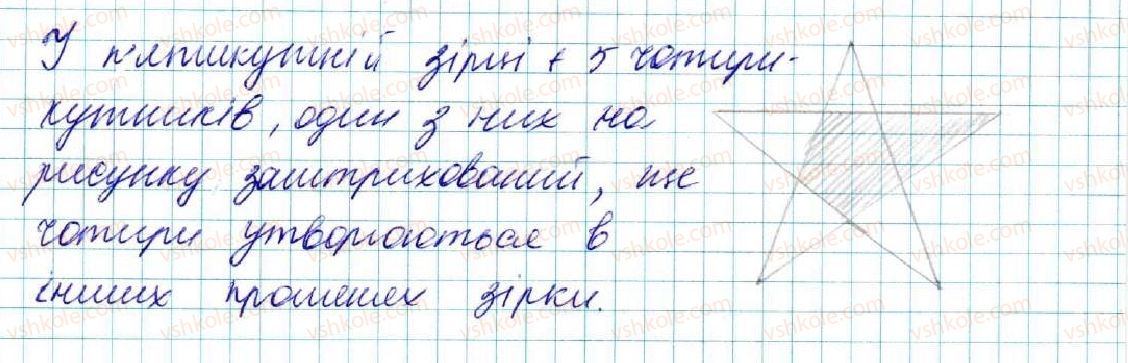 У п'ятикутній зірці є 5 чотири-
кутників, один з них на
рисунку заштрихований, ще
чотири утворюються в
інших променях зірки.